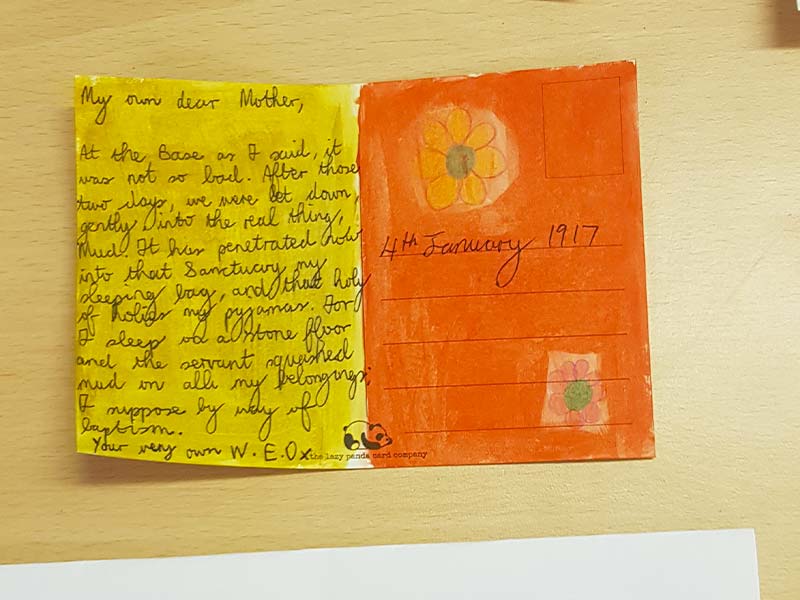 My own dear Mother,
At the Base as I said, it
was not so bad. After those
two days, we were let down,
gently, into the real thing,
Mud. It has penetrated now
into that Sanctuary my
sleeping bag, and that holy
of holies my pyjamas. For
I sleep on a stone floor
and the servant squashed
mud on all my belongings;
I suppose by way of
baptism.
Your very own W.E.O x
4th January 1917
the lazy panda card company